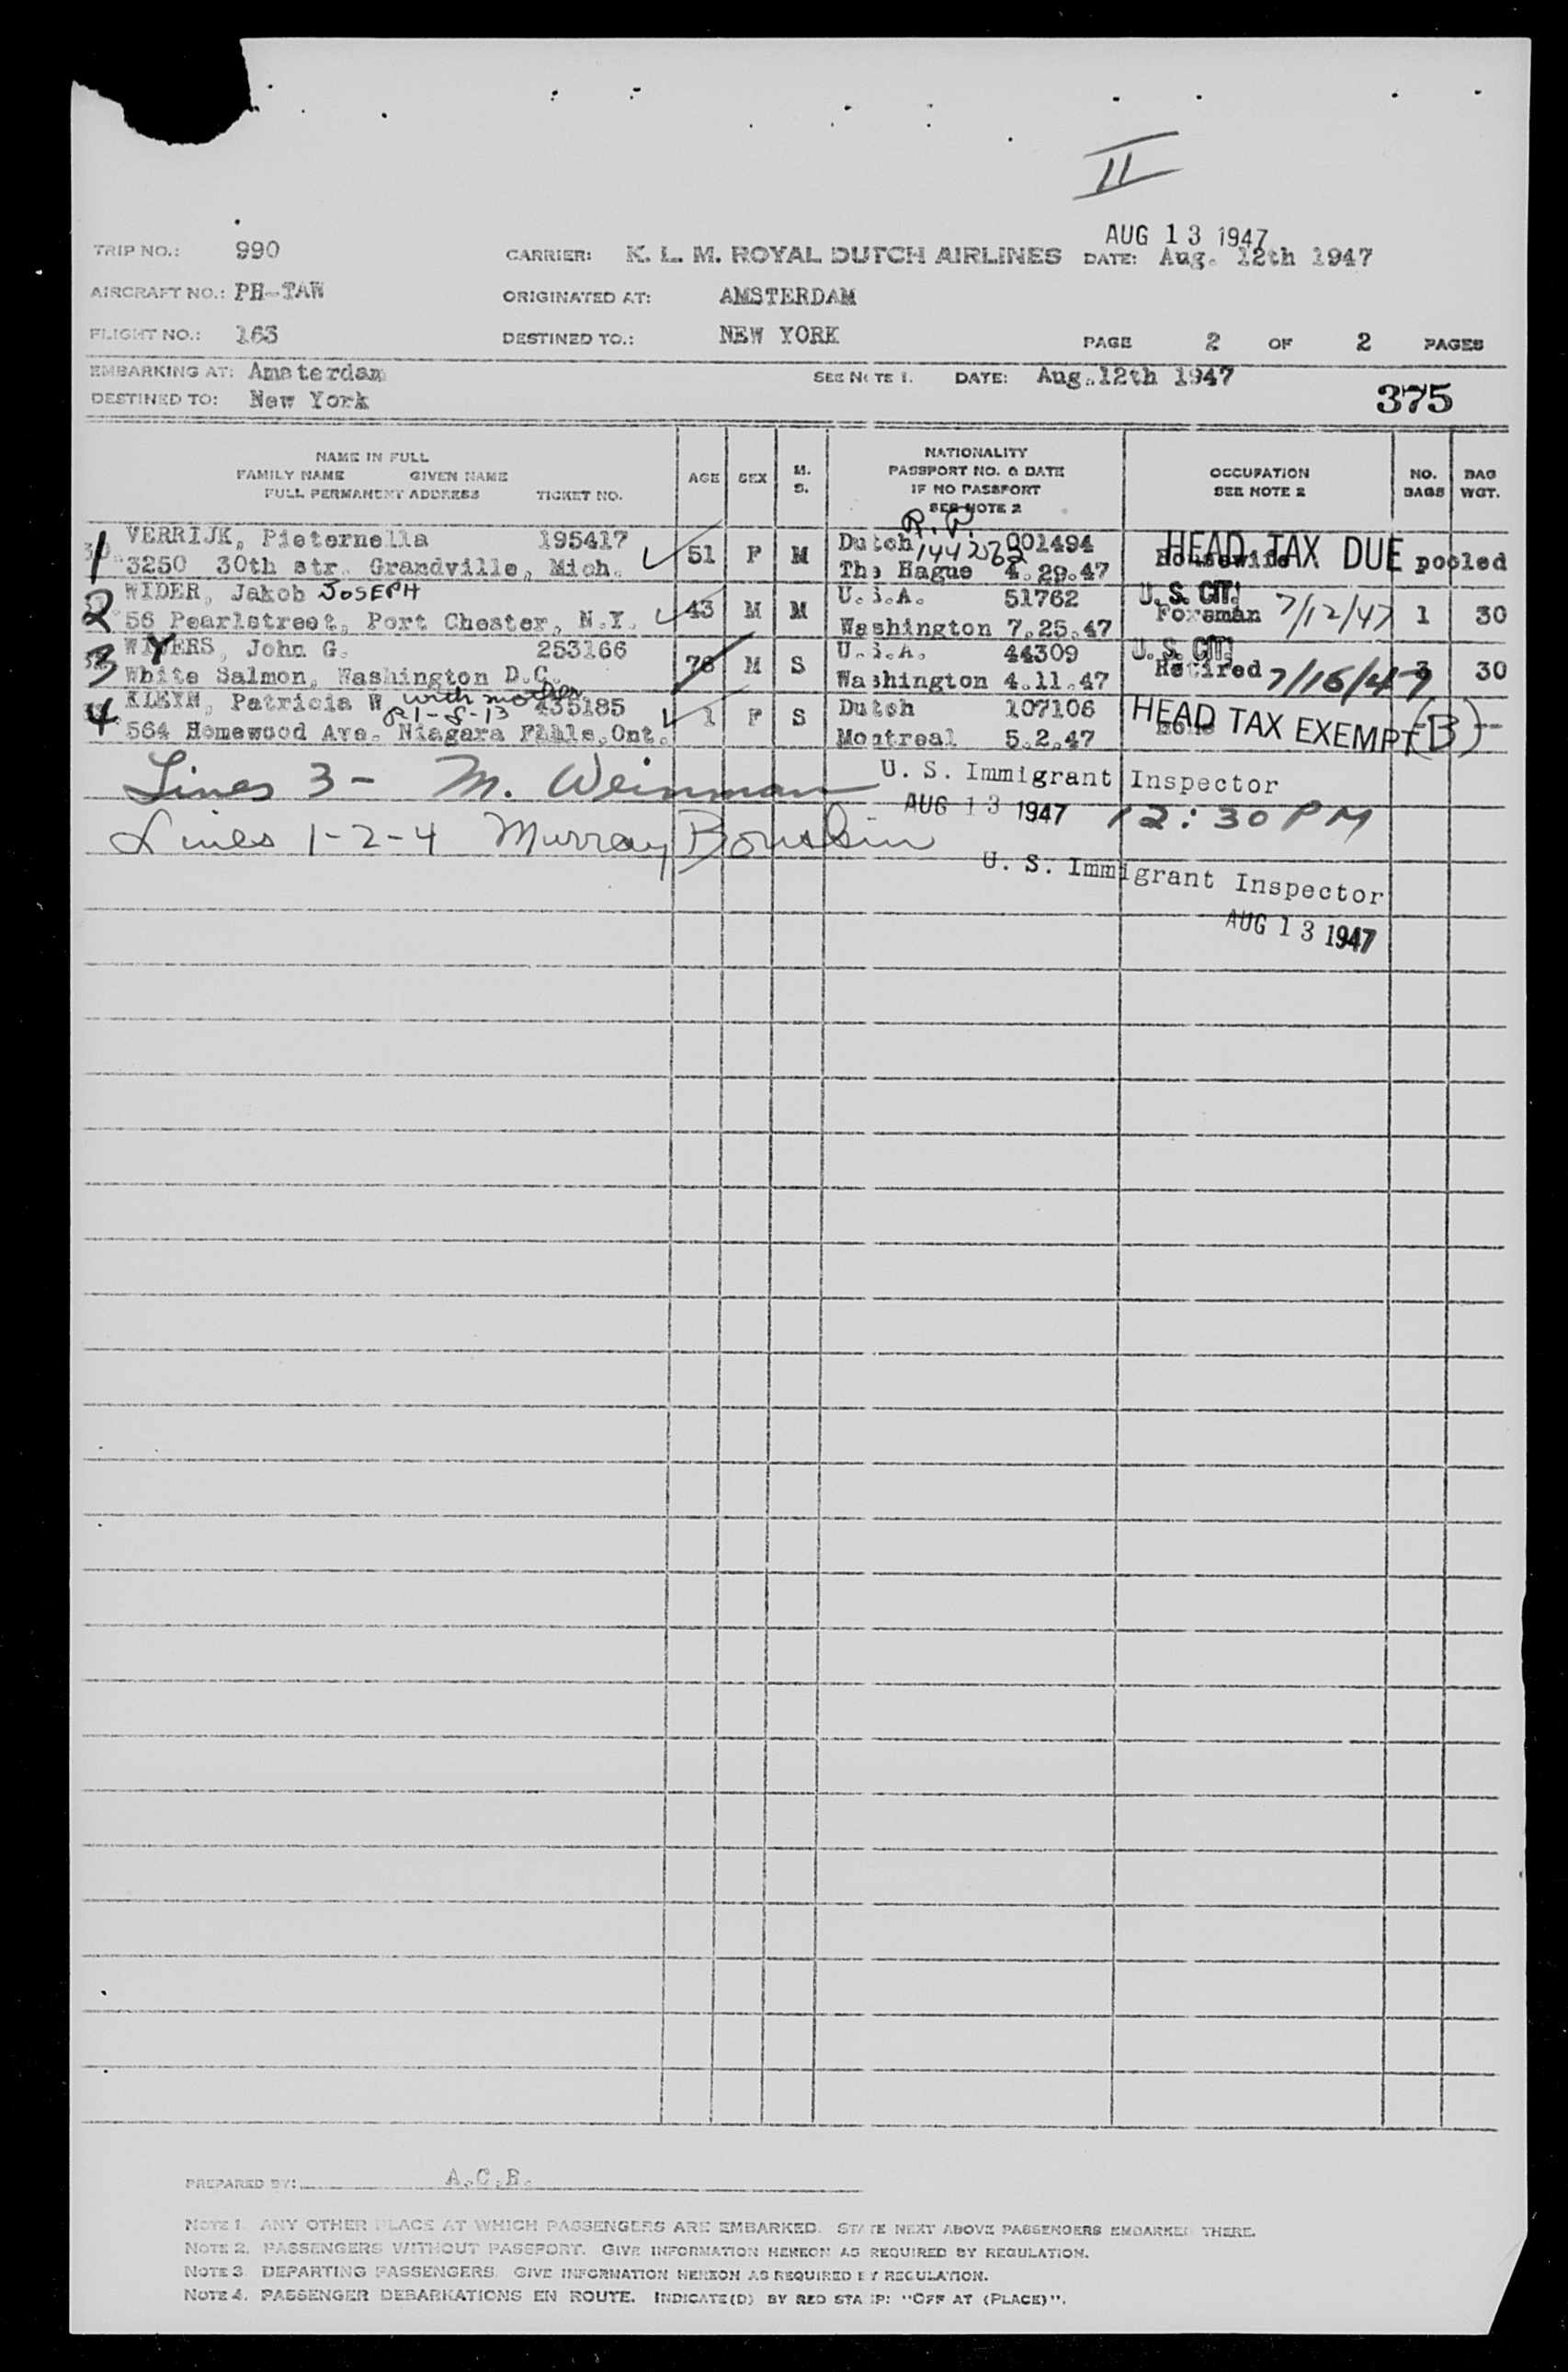 II
AUG 13 1947
TRIP NO.: 990 CARRIER: K. L. M. ROYAL DUTCH AIRLINES DATE: Aug. 12th 1947
AIRCRAFT NO.: PH-TAW ORIGINATED AT: AMSTERDAM
FLIGHT NO.: 163 DESTINED TO.: NEW YORK PAGE 2 OF 2 PAGES
EMBARKING AT: Amsterdam SEE NOTE 1. DATE: Aug.12th 1947
DESTINED TO: New York 375
NAME IN FULL
FAMILY NAME GIVEN NAME
FULL PERMANENT ADDRESS TICKET NO.
AGE SEX M. S.
NATIONALITY
PASSPORT NO. & DATE
IF NO PASSPORT
SEE NOTE 2
OCCUPATION
SEE NOTE 2
NO. BAGS
BAG WGT.
R.P.
1 VERRIJK, Pieternella 195417 51 F M Dutch 1442062 001494 HEAD TAX DUE pooled
3250 30th str. Grandville, Mich. The Hague 4.29.47 Housewife
2 WIDER, Jakob JOSEPH 43 M M U.S.A. 51762 U. S. CIT. 1 30
56 Pearlstreet, Port Chester, N.Y. Washington 7.25.47 Foreman 7/12/47
3 WYERS, John G. 253166 76 M S U.S.A. 44309 U. S. CIT. 3 30
White Salmon, Washington D.C. Washington 4.11.47 Retired 7/16/47
4 KLEYN, Patricia W with mother 435185 1 F S Dutch 107106 HEAD TAX EXEMPT (B) --
564 Homewood Ave. Niagara Falls, Ont. Montreal 5.2.47
R1-8-13
Lines 3 - M. Weinman U. S. Immigrant Inspector
AUG 13 1947 12:30 PM
Lines 1-2-4 Murray
U. S. Immigrant Inspector
AUG 13 1947
PREPARED BY: A.C.B.
NOTE 1. ANY OTHER PLACE AT WHICH PASSENGERS ARE EMBARKED. STATE NEXT ABOVE PASSENGERS EMBARKED THERE.
NOTE 2. PASSENGERS WITHOUT PASSPORT. GIVE INFORMATION HEREON AS REQUIRED BY REGULATION.
NOTE 3. DEPARTING PASSENGERS. GIVE INFORMATION HEREON AS REQUIRED BY REGULATION.
NOTE 4. PASSENGER DEBARKATIONS EN ROUTE. INDICATE(D) BY RED STAMP: "OFF AT (PLACE)".